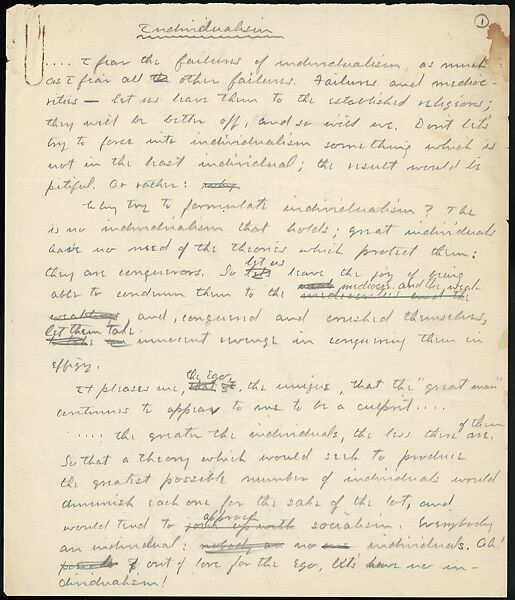 1
Individualism
.... I fear the failures of individualism, as much
as I fear all other failures. Failures and medioc-
rities — let us leave them to the established religions;
they will be better off, and so will we. Don't let's
try to force into individualism something which is
not in the least individual; the result would be
pitiful. Or rather:
Why try to formulate individualism? The
is no individualism that holds; great individuals
have no need of the theories which protect them:
they are conquerors. So let us leave the joy of being
able to condemn them to the mediocre and the weak
and, conquered and crushed themselves,
let them take innocent revenge in conquering them in
effigy.
It pleases me, the Ego, the unique, that the "great man"
continues to appear to me to be a culprit....
.... the greater the individuals, the less there are. of them
So that a theory which would seek to produce
the greatest possible number of individuals would
diminish each one for the sake of the lot, and
would tend to approach socialism. Everybody
an individual: no individuals. Oh!
out of love for the Ego, let's have no in-
dividualism!